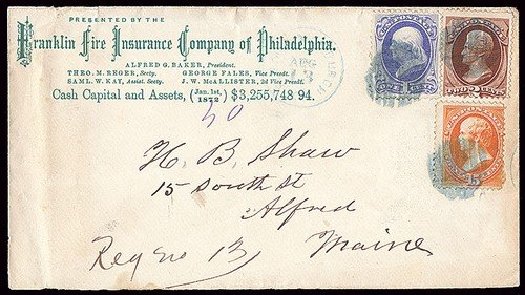 PRESENTED BY THE
Franklin Fire Insurance Company of Philadelphia.
ALFRED G. BAKER, President.
THEO. M. REGER, Secty. GEORGE FALES, Vice Presdt.
SAML. W. KAY, Assist. Secty. J. W. McALLISTER, 2d Vice Presdt.
Cash Capital and Assets, (Jan. 1st, 1872) $3,255,748 94.
AUG
H. B. Shaw
15 South St
Alfred
Maine
Reg no 13